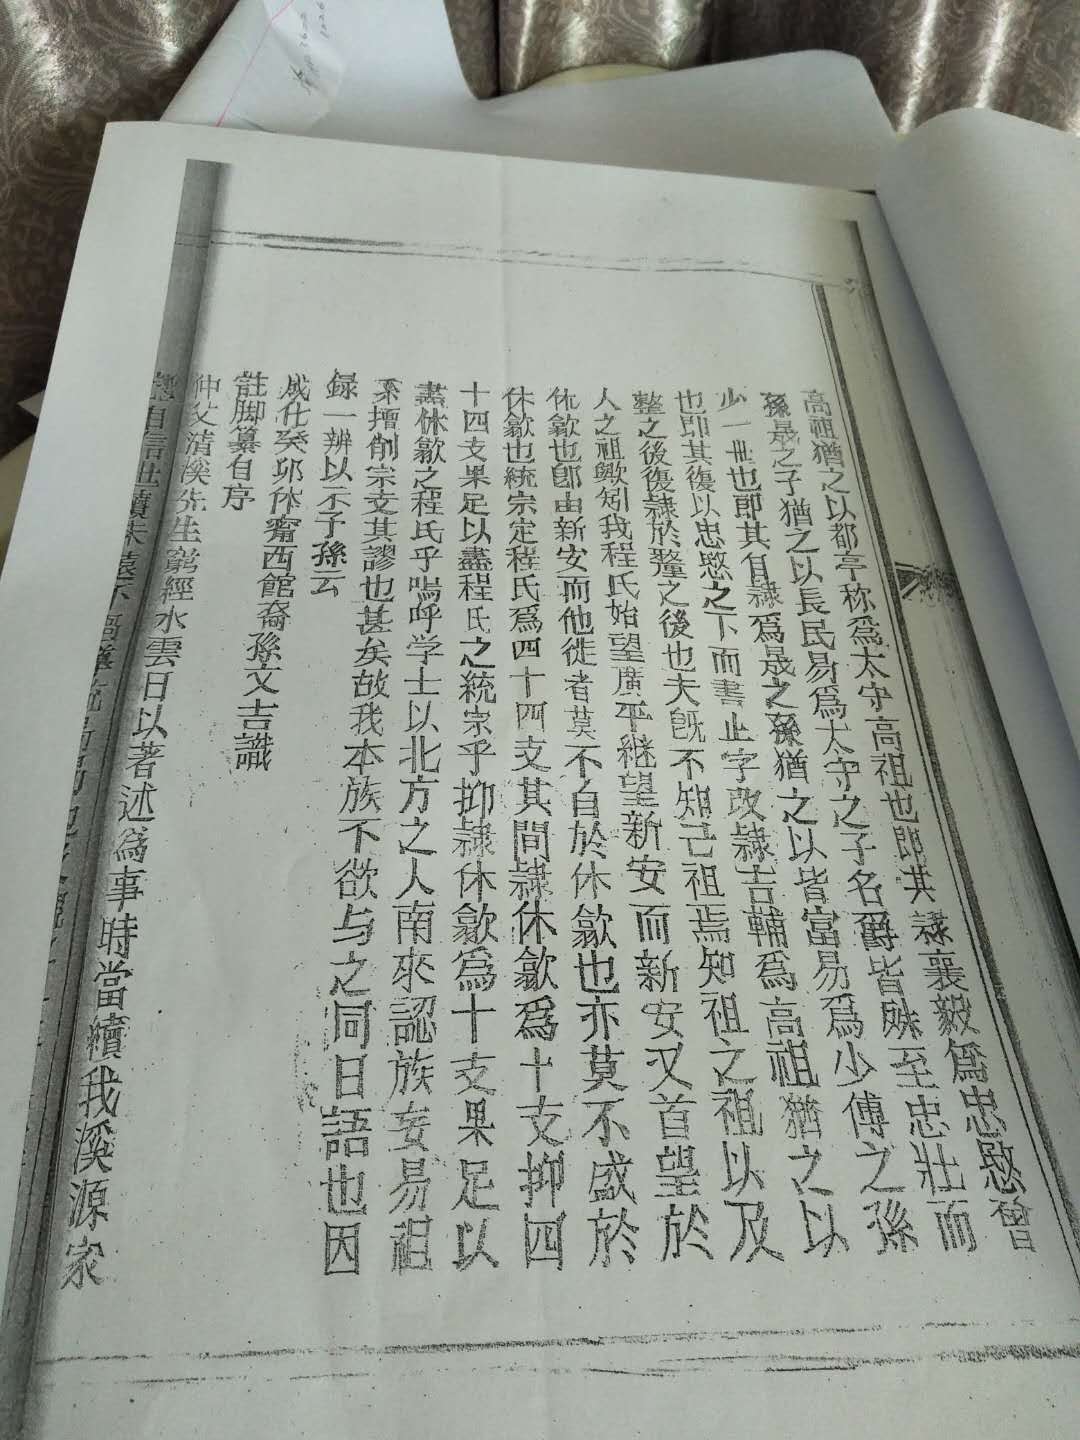 高祖猶之以都亭称爲太守高祖也即其隷襄毅爲忠愍曾
孫晟之子猶之以長民易爲太守之子名爵皆殊至忠壯而
少一世也即其自隷爲晟之孫猶之以皆富易爲少傅之孫
也即其復以忠愍之下而書止字改隷吉輔爲高祖猶之以
整之後復隷於鼇之後也夫既不知己祖焉知祖之祖以及
人之祖歟矧我程氏始望廣平継望新安而新安又首望於
休歙也即由新安而他徙者莫不自於休歙也亦莫不盛於
休歙也統宗定程氏爲四十四支其間隷休歙爲十支抑四
十四支果足以盡程氏之統宗乎抑隷休歙爲十支果足以
盡休歙之程氏乎嗚呼学士以北方之人南來認族妄易祖
系擅削宗支其謬也甚矣故我本族不欲与之同日語也因
録一辨以示子孫云
成化癸卯休甯西館裔孫文吉識
註脚纂自序
仲父清溪先生窮經水雲日以著述爲事時當續我溪源家